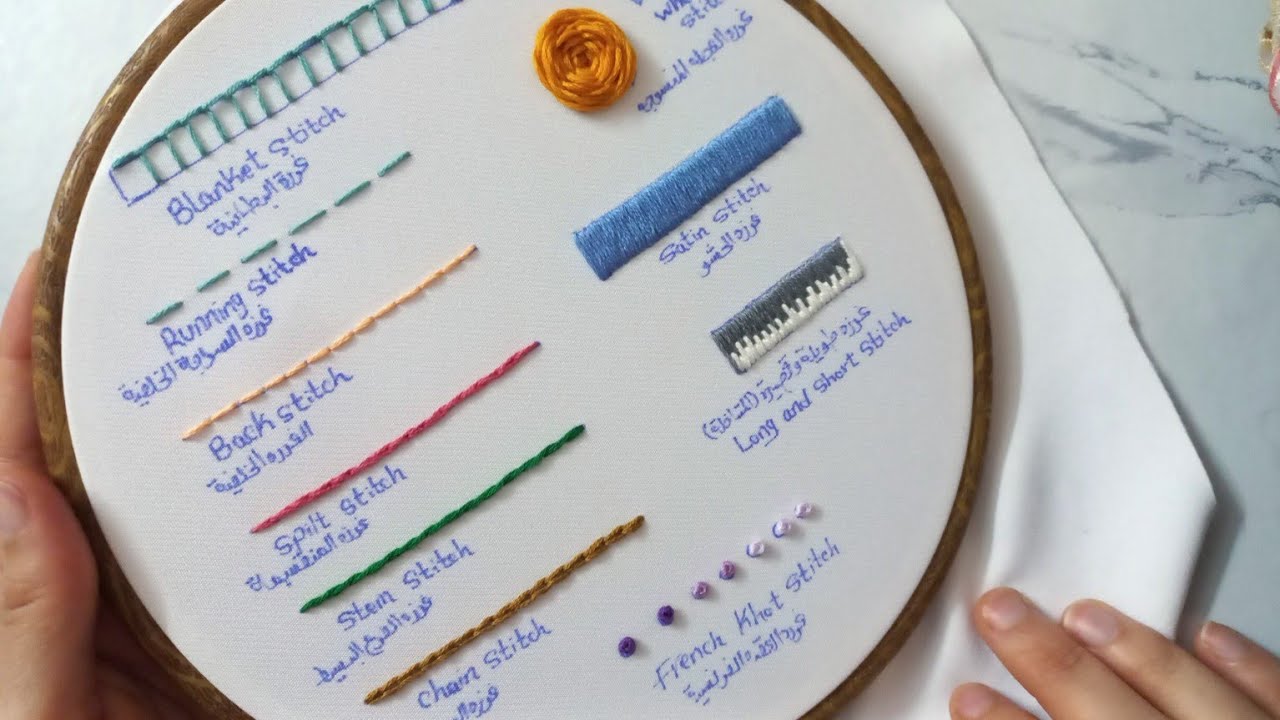 Blanket Stitch
غرزة البطانية
Running Stitch
غرزه السراجة الخلفية
Back stitch
الغرزه الخلفية
Spilt Stitch
غرزه المنقسمة
Stem Stitch
غرزه الفرع البسيط
chain Stitch
غرزه
Stitch
غرزه العجلة المنسوجة
Satin Stitch
غرزه الحشو
غرزه طويلة وقصيرة
Long and Short Stitch
French Khot Stitch
غرزه العقده الفرنسية